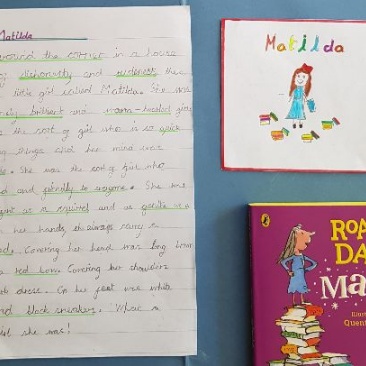 Matilda
around the corner in a house
of dishonesty and
little girl called Matilda. She was
brilliant and warm-hearted
the sort of girl who is so quick
things and her mind was
She was the sort of girl who
and friendly to anyone. She was
as a squirrel and as gentle as a
her hands, she always carry a
Covering her head was long brown
a red bow. Covering her shoulders
dress. On her feet were white
and black sneakers. What a
girl she was!
Matilda
ROA
DA
Ma
Quen